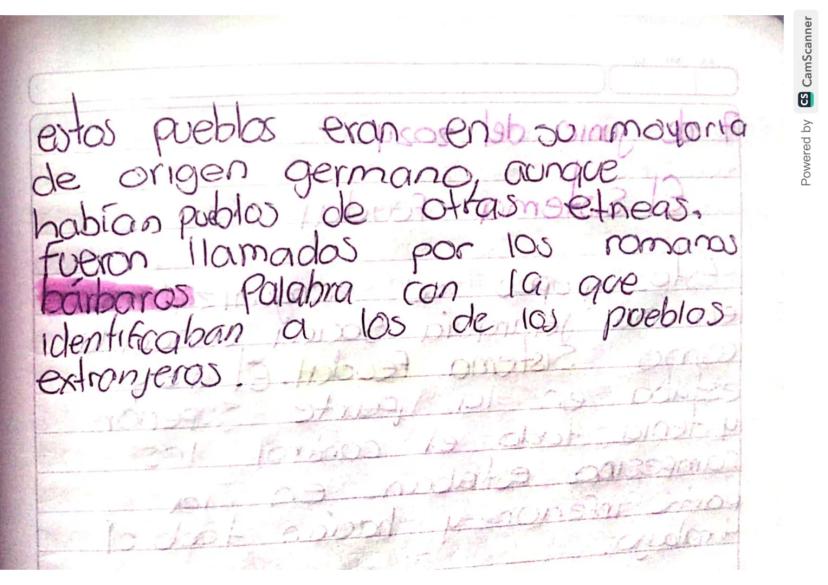 estos pueblos eran en su mayoría
de origen germano, aunque
habían pueblos de otras etneas.
fueron llamados por los romanos
bárbaros Palabra con la que
identificaban a los de los pueblos
extranjeros.
Powered by CS CamScanner